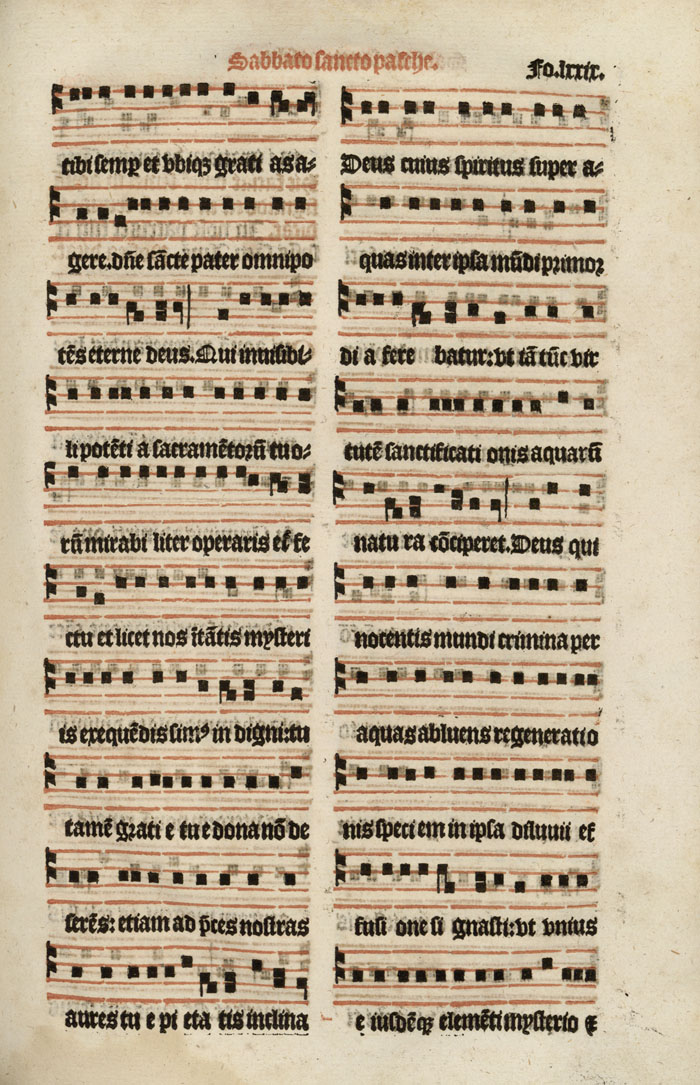 Sabbato sancto pasche.
Fo.lxxix.
tibi semꝑ et vbiqꝫ grati as a⸗
gere.dñe sãcte pater omnipo
tẽs eterne deus.Qui inuisibi⸗
li potẽti a sacramẽtorũ tuo⸗
rũ mirabi liter operaris effe
ctu et licet nos ĩtãtis mysteri
is exequẽdis simꝰ in digni:tu
tamẽ grati e tue dona nõ de
serẽs: etiam ad p̃ces nostras
aures tu e pi eta tis inclina
Deus cuius spiritus super a⸗
quas inter ipsa mũdi primoꝛ
di a fere batur:vt iã tũc vir
tutẽ sanctificati onis aquarũ
natu ra cõciperet.Deus qui
nocentis mundi crimina per
aquas abluens regeneratio
nis speci em in ipsa diluuii ef
fusi one si gnasti:vt vnius
e iusdẽqꝫ elemẽti mysterio ⁊